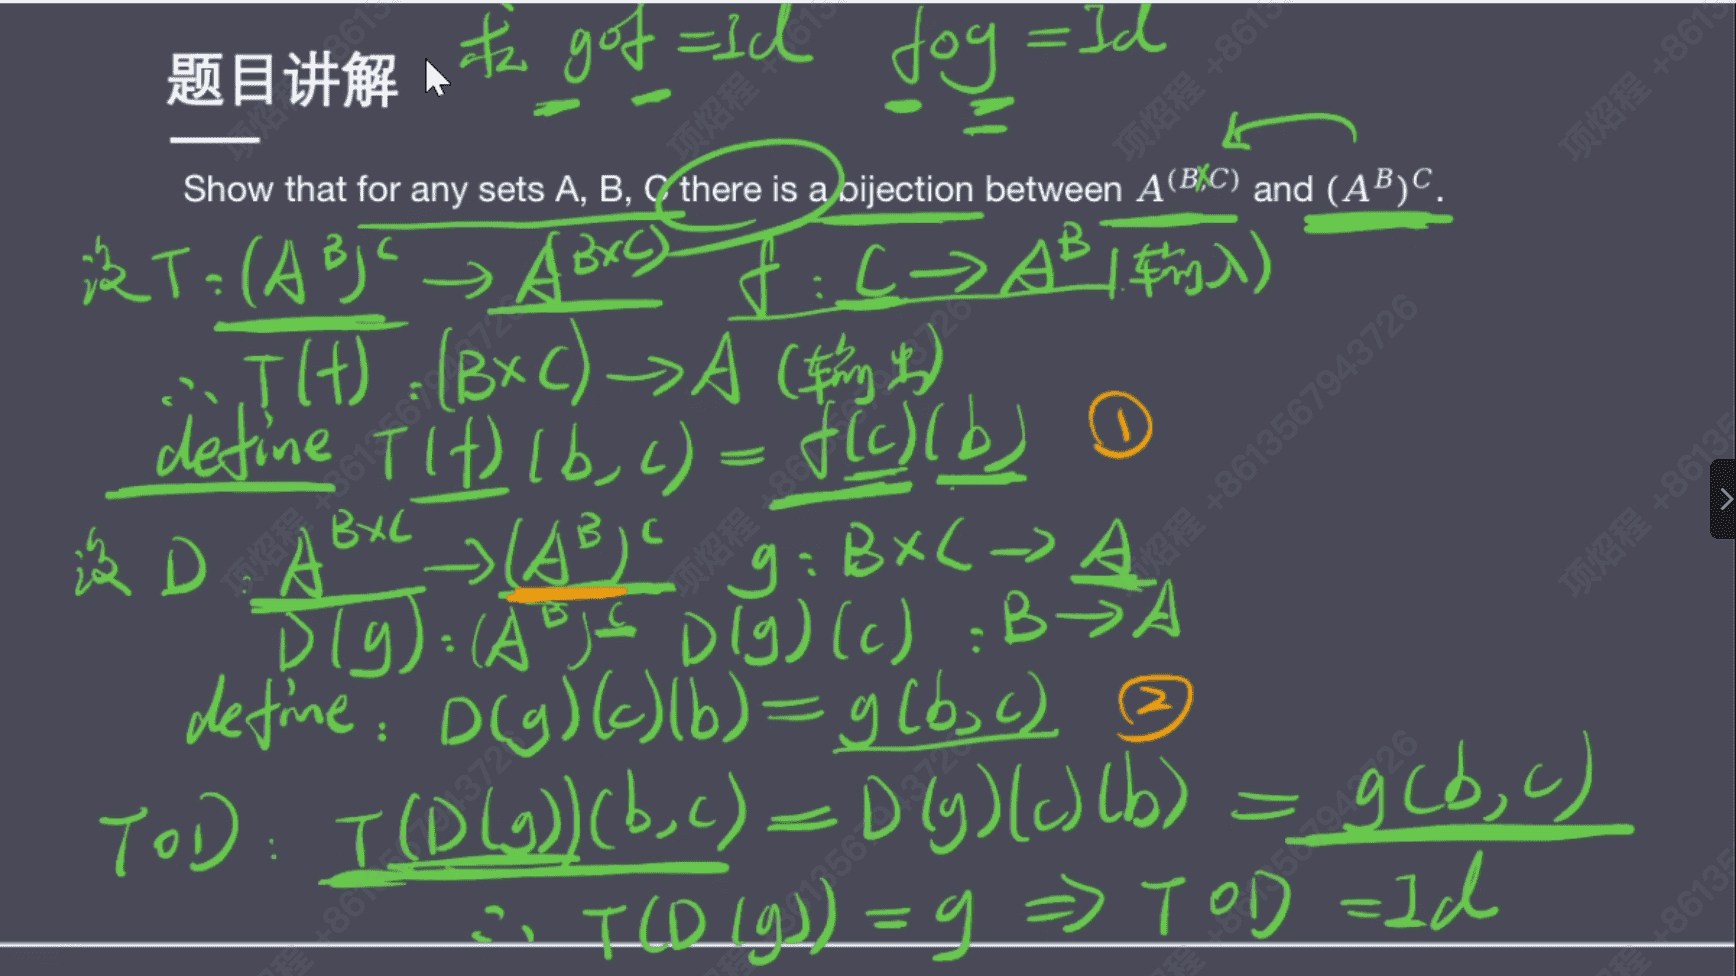 求 g∘f = Id f∘g = Id
题目讲解
Show that for any sets A, B, C there is a bijection between A^(B×C) and (A^B)^C.
设 T : (A^B)^C → A^(B×C) f : C → A^B (输入)
∴ T(f) : (B×C) → A (输出)
define T(f)(b, c) = f(c)(b) ①
设 D : A^B×C → (A^B)^C g : B×C → A
D(g) : (A^B)^C D(g)(c) : B → A
define : D(g)(c)(b) = g(b, c) ②
T∘D : T(D(g))(b, c) = D(g)(c)(b) = g(b, c)
∴ T(D(g)) = g ⇒ T∘D = Id
项焰程 +8613567943726